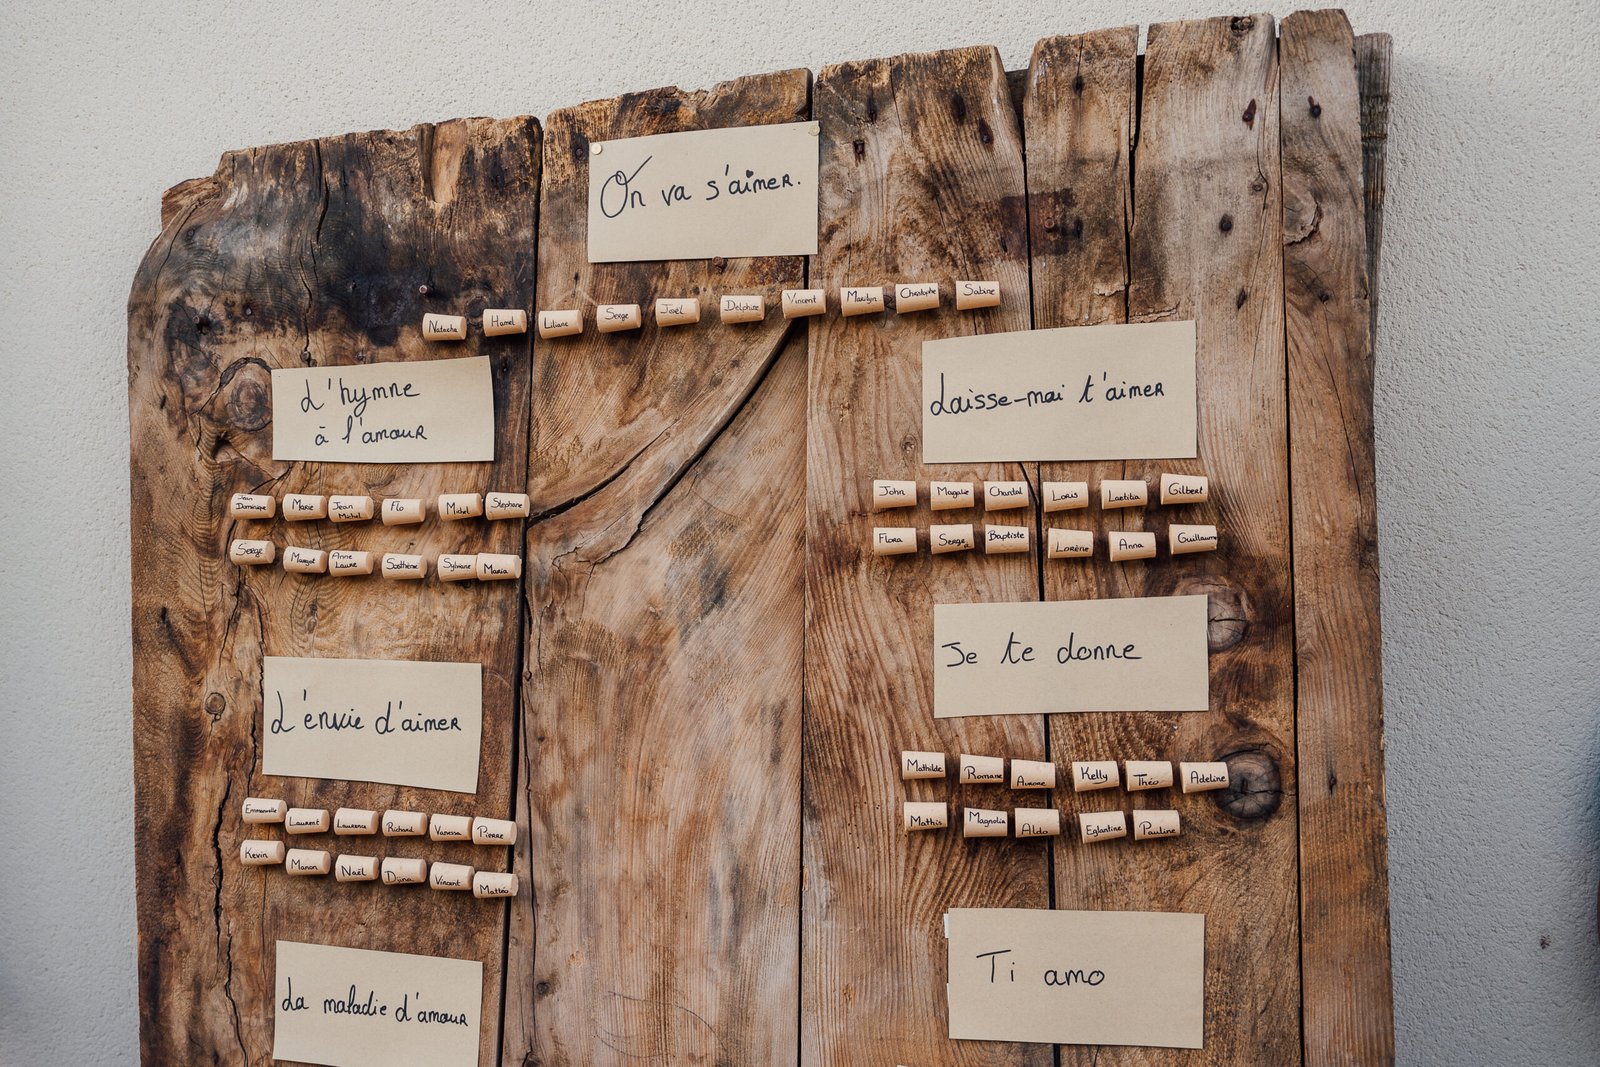 On va s'aimer.
Natacha Hamel Liliane Serge Joël Delphine Vincent Marilyn Christophe Sabine
L'hymne
à l'amour
Jean Dominique Marie Jean Michel Flo Michel Stéphane
Serge Margot Anne Laure Sosthène Sylviane Maria
Laisse-moi t'aimer
John Magalie Chantal Loris Laetitia Gilbert
Flora Serge Baptiste Lorène Anna Guillaume
L'envie d'aimer
Emmanuelle Laurent Laurence Richard Vanessa Pierre
Kevin Manon Naël Djina Vincent Mattéo
Je te donne
Mathilde Romane Aurore Kelly Théo Adeline
Mathis Magnolia Aldo Eglantine Pauline
La maladie d'amour
Ti amo